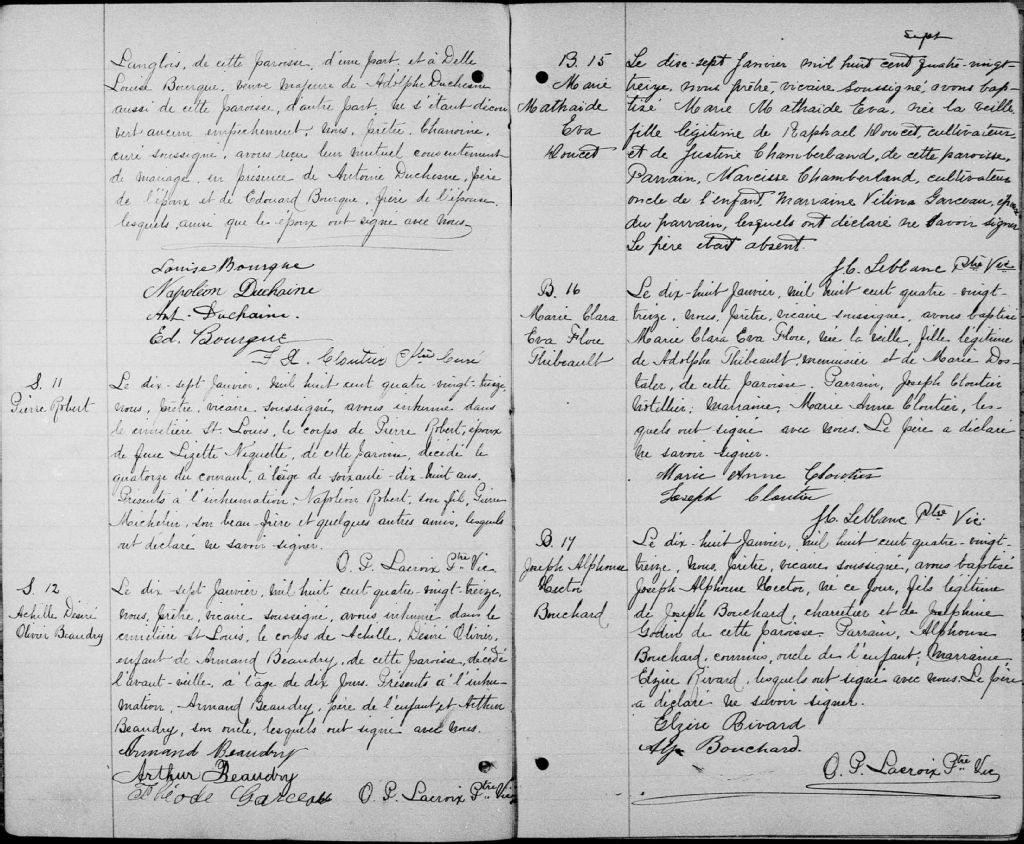 Langlois, de cette paroisse, d'une part, et à Delle
Louise Bourque, veuve majeure de Adolphe Duchesne
aussi de cette paroisse, d'autre part, ne s'étant décou
vert aucun empêchement, nous, prêtre, Chanoine,
curé soussigné, avons reçu leur mutuel consentement
de mariage en présence de Antoine Duchesne, père
de l'époux et de Edouard Bourque, frère de l'épouse
lesquels, ainsi que les époux ont signé avec nous.
Louise Bourque
Napoléon Duchaine
Ant. Duchaine.
Ed. Bourque
Cloutier Ptre Curé
S. 11
Pierre Robert
Le dix-sept Janvier, mil huit cent quatre-vingt-treize,
nous, prêtre, vicaire soussigné, avons inhumé dans
le cimetière St. Louis, le corps de Pierre Robert, époux
de feue Lizette Niquette, de cette paroisse, décédé le
quatorze du courant, à l'âge de soixante-dix-huit ans.
Présents à l'inhumation: Napoléon Robert, son fils, Pierre
Michelin, son beau-frère et quelques autres amis, lesquels
ont déclaré ne savoir signer.
O. P. Lacroix Ptre Vic
S. 12
Achille Désiré
Olivier Beaudry
Le dix-sept Janvier, mil huit cent quatre-vingt-treize,
nous, prêtre, vicaire soussigné, avons inhumé dans le
cimetière St Louis, le corps de Achille, Désiré Olivier,
enfant de Armand Beaudry, de cette paroisse, décédé
l'avant-veille, à l'âge de dix jours. Présents à l'inhu-
mation, Armand Beaudry, père de l'enfant et Arthur
Beaudry, son oncle, lesquels ont signé avec nous.
Armand Beaudry
Arthur Beaudry
Théode Garceau
O. P. Lacroix Ptre Vic
sept
B. 15
Marie
Mathaide
Eva
Doucet
Le dise-sept Janvier mil huit cent quatre-vingt-
treize, nous prêtre, vicaire soussigné, avons bap-
tisé Marie Mathaide Eva, née la veille,
fille légitime de Raphael Doucet, cultivateur
et de Justine Chamberland, de cette paroisse.
Parrain, Narcisse Chamberland, cultivateur
oncle de l'enfant, marraine Vilina Garceau, épouse
du parrain, lesquels ont déclaré ne savoir signer
Le père était absent.
J. C. Leblanc Ptre Vic
B. 16
Marie Clara
Eva Flore
Thibeault
Le dix-huit Janvier, mil huit cent quatre-vingt-
treize, nous, prêtre, vicaire soussigné, avons baptisé
Marie Clara Eva Flore, née la veille, fille légitime
de Adolphe Thibeault, menuisier et de Marie Dos-
taler, de cette paroisse. Parrain, Joseph Cloutier
hôtellier; marraine, Marie Anne Cloutier, les-
quels ont signé avec nous. Le père a déclaré
ne savoir signer.
Marie Anne Cloutier
Joseph Cloutier
J. C. Leblanc Ptre Vic.
B. 17
Joseph Alphonse
Hector
Bouchard
Le dix-huit Janvier, mil huit cent quatre-vingt-
treize, nous, prêtre, vicaire, soussigné, avons baptisé
Joseph Alphonse Hector, né ce jour, fils légitime
de Joseph Bouchard, charetier et de Joséphine
Godin de cette paroisse. Parrain, Alphonse
Bouchard, commis, oncle de l'enfant; Marraine
Elzire Rivard, lesquels ont signé avec nous. Le père
a déclaré ne savoir signer.
Elzire Rivard
Alp Bouchard.
O. P. Lacroix Ptre Vic